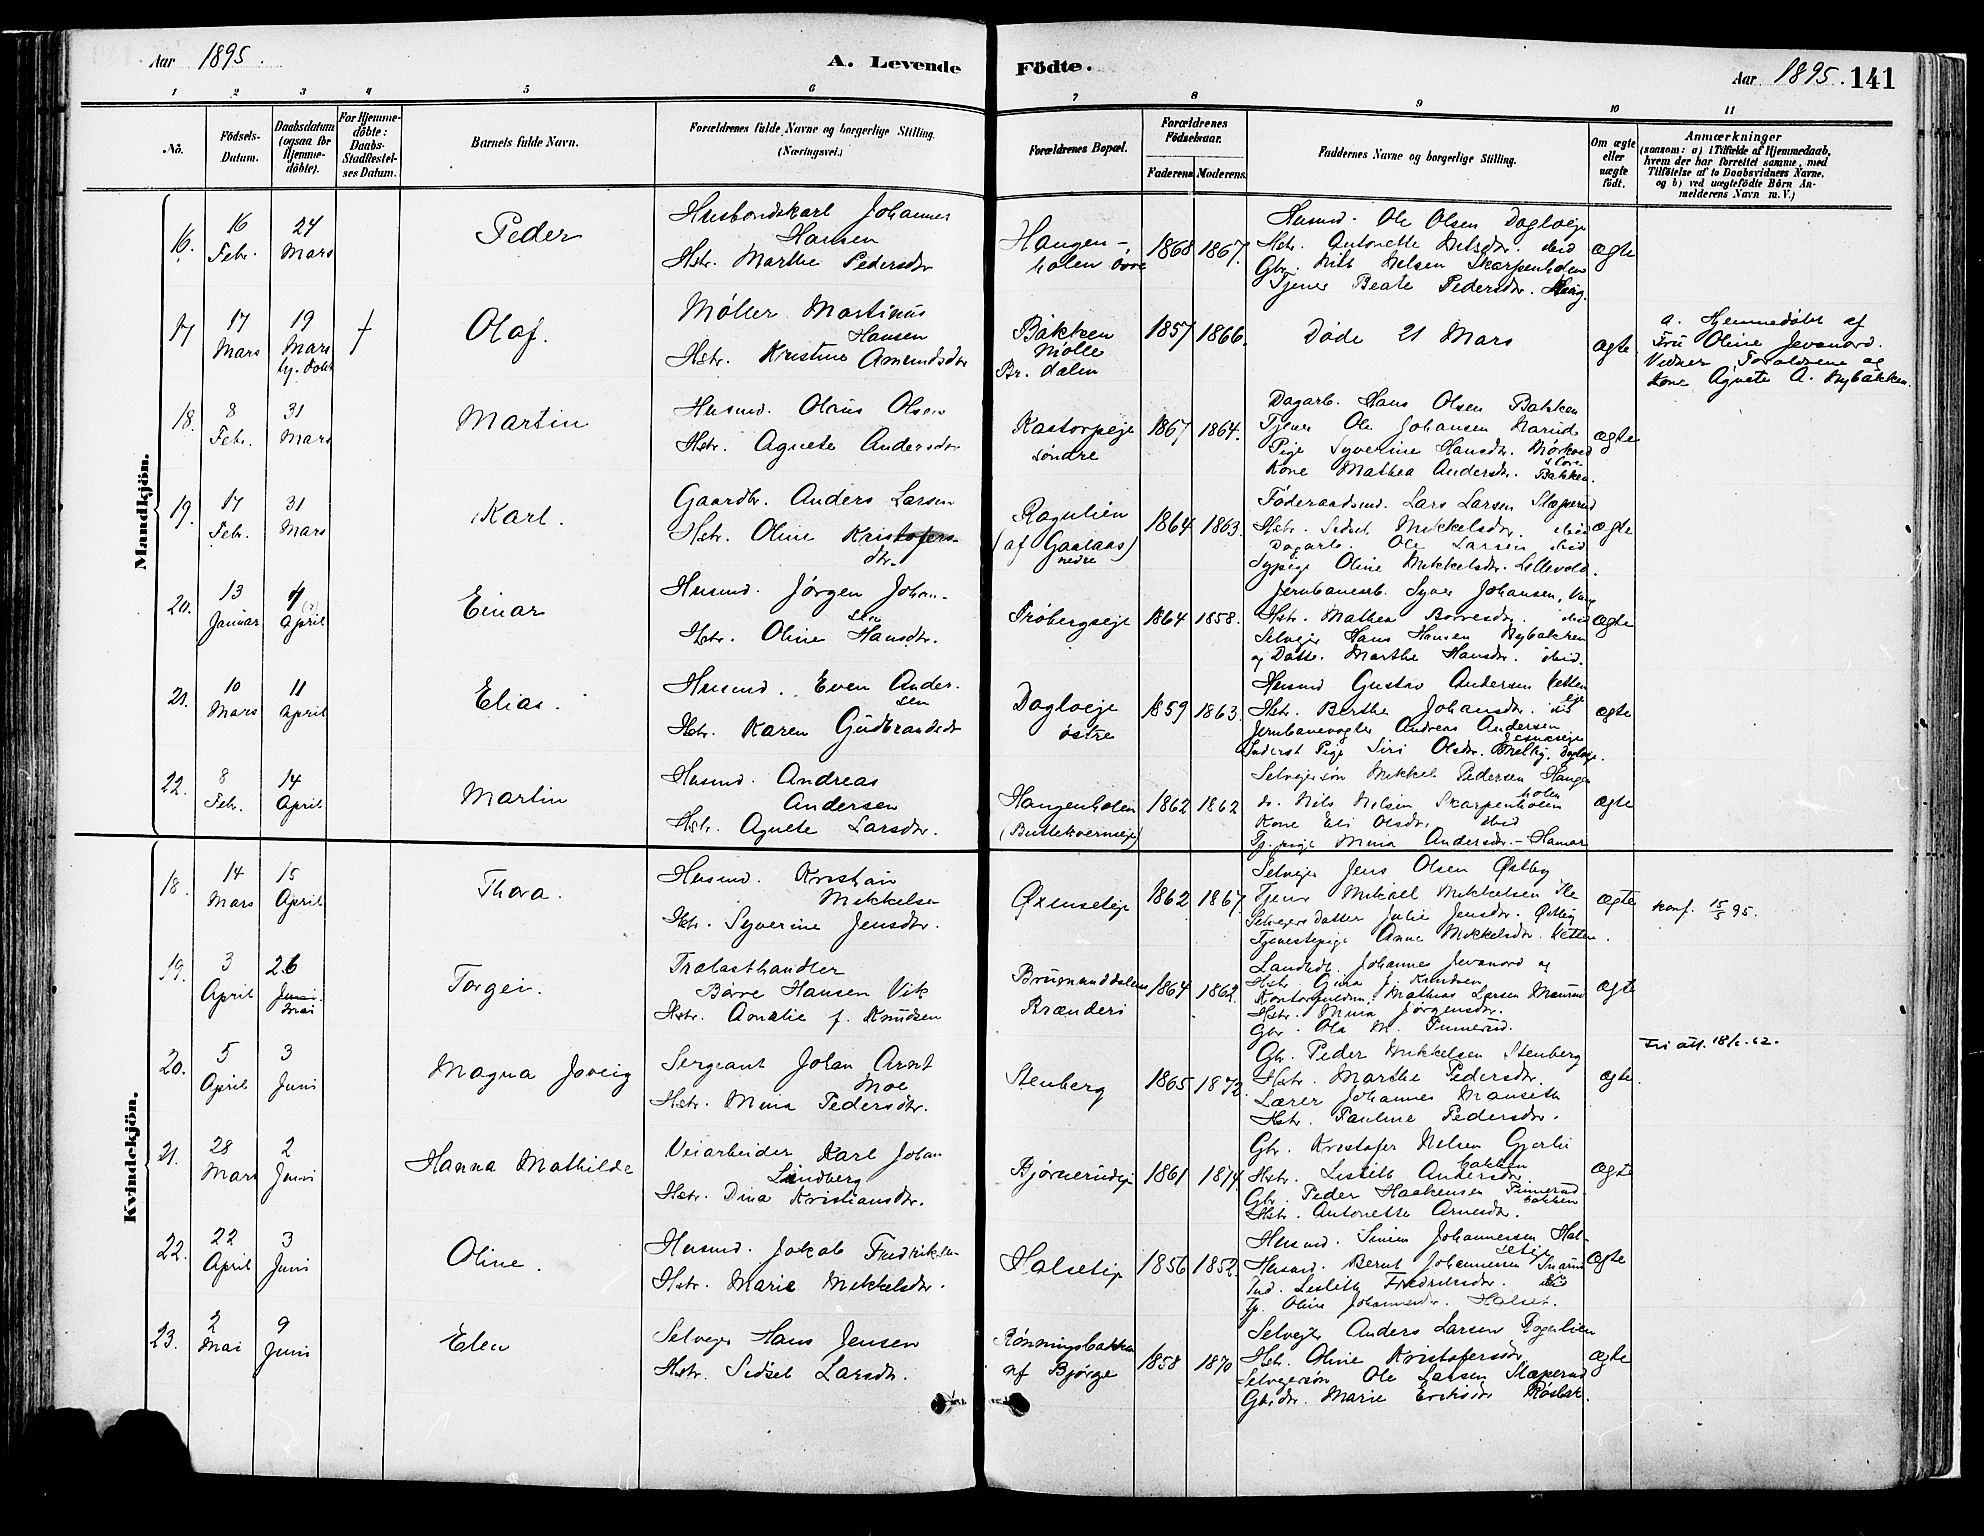 Aar 1895.
A. Levende Födte.
Aar 1895. 141
1 2 3 4 5 6 7 8 9 10 11
No.
Födsels-Datum.
Daabsdatum (ogsaa for Hjemmedöbte).
For Hjemmedöbte: Daabs-Stadfestelses Datum.
Barnets fulde Navn.
Forældrenes fulde Navne og borgerlige Stilling. (Næringsvei.)
Forældrenes Bopæl.
Forældrenes Födselsaar.
Faderens. Moderens.
Faddernes Navne og borgerlige Stilling.
Om ægte eller uægte födt.
Anmærkninger
(saasom: a) i Tilfælde af Hjemmedaab, hvem der har forrettet samme, med Tilföielse af to Daabsvidners Navne, og b) ved uægtefödte Börn Anmelderens Navn m. V.)
Mandkjön.
16. 16 Febr. 24 Mars Peder
Husbondskarl Johannes
Hansen
Hstr. Marthe Pedersdtr
Haugen-
holen övre 1868 1867.
Husmd. Ole Olsen Dagloeje
Hstr. Antonette Nilsdtr. ibid
Gbr. Nils Nilsen Skarpenholen
Tjener Beate Pedersdtr.
ægte
17 17 Mars 19 Mars hj. döbt † Olaf.
Møller Martinus
Hansen
Hstr. Kristine Amundsdtr
Bakken
Mölle
Br. dalen 1857 1866.
Døde 21 Mars
ægte
a. Hjemmedøbt af
Fru Oline Jevanord.
Vidner Forældrene og
Kone Agnete A. Nybakken.
18. 8 Febr. 31 Mars Martin
Husmd. Olaus Olsen
Hstr. Agnete Andersdtr
Kastorpeje
søndre 1867 1864.
Dagarb. Hans Olsen Bakken
Tjener Ole Johansen Narud
Pige Syverine Hansdtr. Mørkved
Kone Mathea Andersdtr. Bakken.
ægte
19. 17 Febr. 31 Mars Karl.
Gaardbr. Anders Larsen
Hstr. Oline Kristofers-
dtr.
Rogulien
(af Gaalaas)
nedre 1864 1863.
Föderaadsmd. Lars Larsen Slæperud
Hstr. Sidsel Mikkelsdtr. ibid
Dagarb. Ole Larsen ibid
Sypige Oline Mikkelsdtr. Lillevold.
ægte
20. 13 Januar 4 April Einar
Husmd. Jørgen Johan-
sen
Hstr. Oline Hansdtr.
Frøbergseje 1864 1858.
Jernbanearb. Syver Johansen, Vang
Hstr. Mathea Borresdtr. ibid
Selvejer Hans Hansen Nybakken
og Datt. Marthe Hansdtr. ibid.
ægte
21. 10 Mars 11 April Elias.
Husmd. Even Ander-
sen
Hstr. Karen Gudbrandsdtr
Dagloeje
østre 1859 1863.
Husmd Gustav Andersen
Hstr. Berthe Johansdtr.
Jernbanevogter Andreas Andersen
Inderst Pige Siri Olsdtr.
ægte
22. 8 Febr. 14 April Martin
Husmd. Andreas
Andersen
Hstr. Agnete Larsdtr.
Haugenholen
(Buttekverneje) 1862 1862
Selvejersøn Mikkel Pedersen Haugen
holen
do. Nils Nilsen Skarpenholen
Kone Eli Olsdtr. ibid
Tj. pige Mina Andersdtr. - Hamar
ægte
Kvindekjön.
18. 14 Mars 15 April Thora.
Husmd. Kristian
Mikkelsen
Hstr. Syverine Jensdtr.
Øxenseteje 1862 1867.
Selvejer Jens Olsen Østby
Tjener Mikael Mikkelsen
Selvejerdatter Julie Jensdtr. Østby
Tjenestepige Anne Mikkelsdtr.
ægte
konf. 15/5 95.
19. 3 April 26 Juni. Mai Torgei.
Trælasthandler
Børre Hansen Vik
Hstr. Amalie f. Knudsen
Brumunddalen
Brænderi 1864 1862.
Landhdl. Johannes Jevanord og
Hstr. Gina f. Knudsen
Kontorfuldm. Mathias Larsen
Hstr. Mina Jørgensdtr.
Gbr. Ole M. Pinnerud.
ægte
20. 5 April 3 Juni Magna Joveig
Sergeant Johan Arnt
Moe
Hstr. Mina Pedersdtr.
Stenberg 1865 1872.
Gbr. Peder Mikkelsen Stenberg
Hstr. Marthe Pedersdtr.
Lærer Johannes Manseth
Hstr. Pauline Pedersdtr.
ægte.
Fri att. 18/6. 62.
21. 28 Mars 2 Juni Hanna Mathilde
Veiarbeider Karl Johan
Lindberg
Hstr. Dina Kristiansdtr.
Bjørnerudeje 1861 1874.
Gbr. Kristofer Nilsen Gjerli
bakken
Hstr. Lisbeth Andersdtr
Gbr. Peder Haakensen Pinnerud
bakken
Hstr. Antonette Arnesdtr.
ægte
22. 22 April 3 Juni Oline.
Husmd. Jakob Fredriksen
Hstr. Marie Mikkelsdtr.
Halseteje 1856 1852.
Husmd. Simen Johannessen Hal-
seteje
Husmd. Bernt Johannessen
Ind. Lisbeth Fredriksdtr. ibid
Tj. Oline Johannesdtr. Halset.
ægte
23. 2 Mai 9 Juni Elen
Selvejer Hans Jensen
Hstr. Sidsel Larsdtr.
Rønningsbakken
af Bjørge 1858 1870
Selvejer Anders Larsen Rogulien
Hstr. Oline Kristofersdtr.
Selvejersøn Ole Larsen Slæperud
Gbrdtr. Marie Eriksdtr Røsbak.
ægte